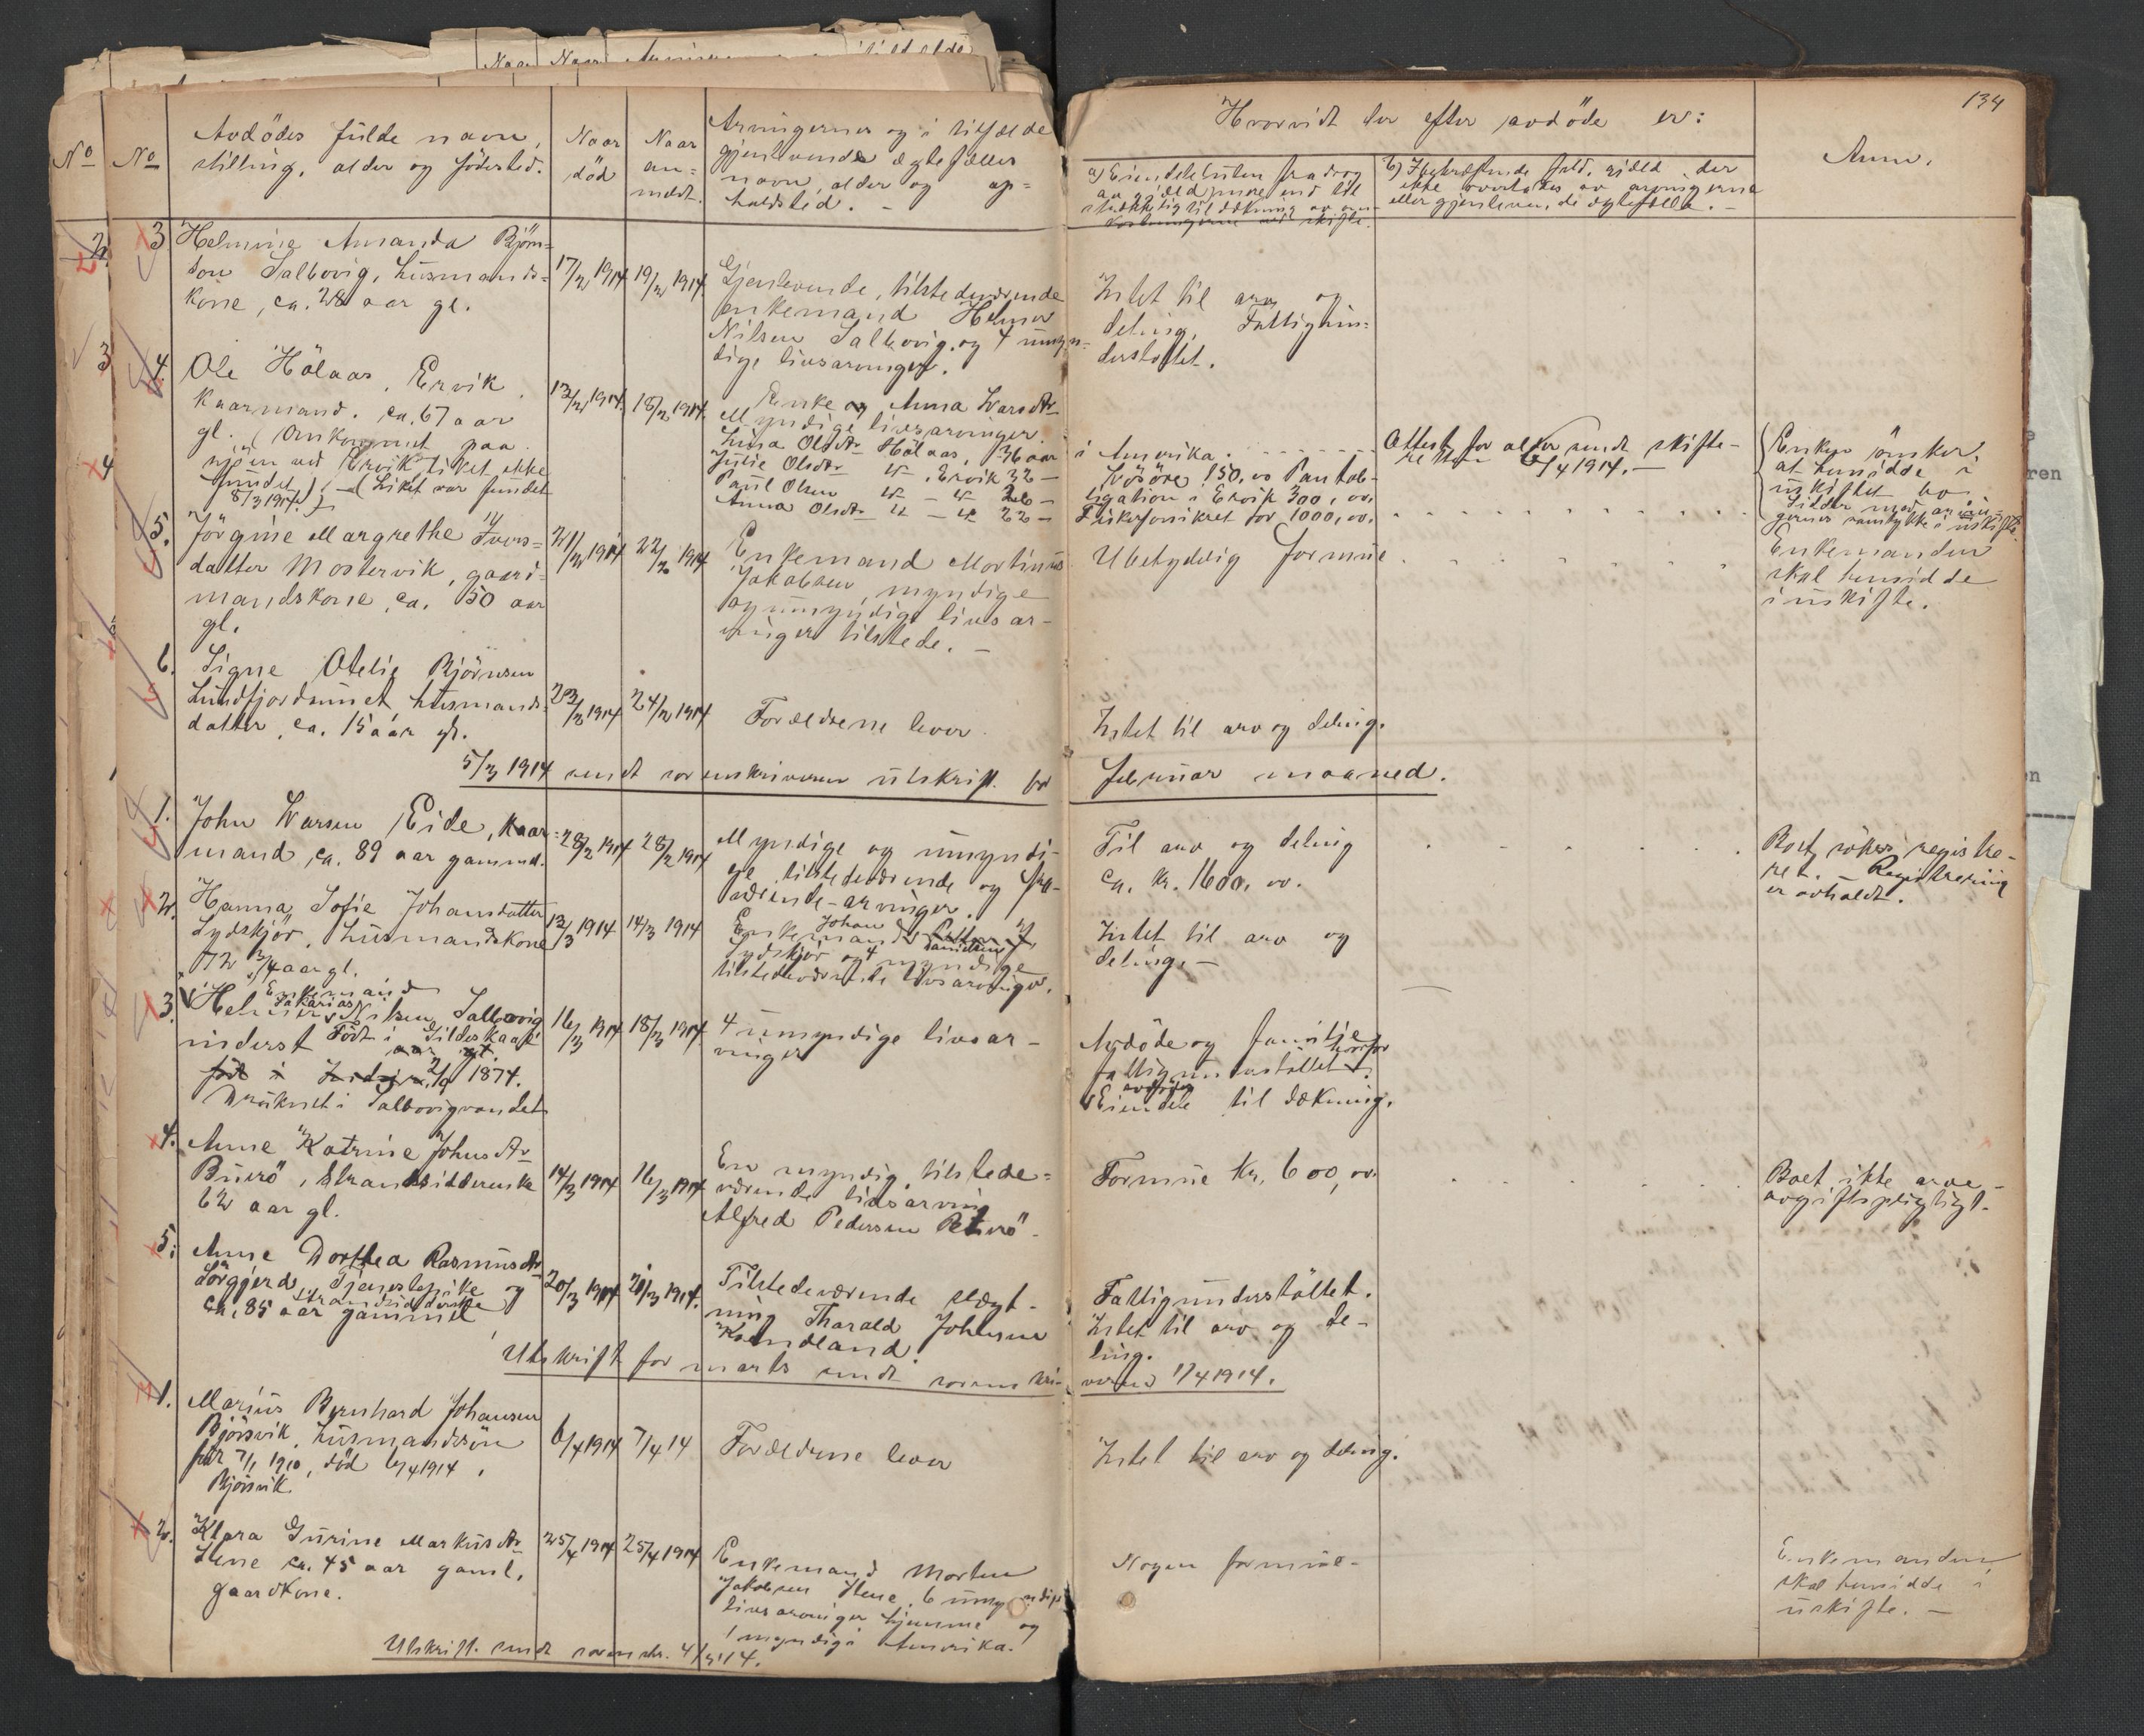 134
No
No
Avdödes fulde navn,
stilling, alder og födested.
Naar
död
Naar
an-
meldt.
Arvingernes og i tilfælde
gjenlevende ægtefælles
navn, alder og op-
holdsted. –
Hvorvidt der efter avdöde er:
a) Eiendele uten fradrag
av gjæld mere end til-
strækkelig til dækning av om-
kostningerne ved skifte.
b) Ikke ovrtages av arvingerne
eller gjenlevende ægtefælle. –
Anm.
2
3
Helmine Amanda Björn-
son Salbovig, husmands-
kone, ca. 28 aar gl.
17/2 1914
19/2 1914.
Gjenlevende, tilstedeværende
enkemand Helmer
Nilsen Salbovig og 4 umyn-
dige livsarvinger.
Intet til arv og
deling, Fattigun-
derstöttet.
3
4
Ole Hölaas, Ervik
Kaarmand. ca. 67 aar
gl. (Omkommet paa
sjöen ved Ervik, liket ikke
fundet) – (Liket var fundet
8/3 1914.)
13/2 1914.
18/2 1914.
Enke Anna Larsdtr
Myndige livsarvinger
Lina Olsdtr Hölaas, 36 aar
Julie Olsdtr " Ervik 32 –
Paul Olsen " – " 26 –
Anna Olsdtr " – " 22 –
i Amerika.
Lösöre 150,00 Pantob-
ligation i Ervik 300,00.
Fiskerforsikret for 1000,00.
Attest for alder sendt skifte-
retten 6/4 1914. –
Enken önsker
at hensidde i
uskiftet bo.
Sidder med arvin-
gernes samtykke i uskifte.
4
5.
Jörgine Margrethe Ivers-
datter Mostervik, gaard-
mandskone, ca. 50 aar
gl.
21/2 1914
22/2 1914
Enkemand Martinus
Jakobsen, myndige
og umyndige livsar-
vinger tilstede. –
Ubetydelig formue
Enkemanden
skal hensidde
i uskifte.
6.
Signe Otelie Björnsen
Lundfjordsund husmands-
datter, ca. 15 aar gl.
23/2 1914
24/2 1914
Forældrene lever
Intet til arv og deling.
5/3 1914 sendt sorenskriveren utskrift for februar maaned.
1.
John Larsen Eide, kaar-
mand, ca. 89 aar gammel.
28/2 1914
28/2 1914
Myndige og umyndi-
ge tilstedeværende og fra-
værende arvinger.
Til arv og deling
ca. kr. 1600,00.
Boet sökes registre-
ret. Registrering
er avholdt.
2.
Hanna Sofie Johansdatter
Lydskjör, husmandskone
72 3/4 aar gl.
12/3 1914
14/3 1914
Enkemand Johan
Lydskjör og 4 myndige
tilstedeværende livsarvinger.
Intet til arv og
deling. –
3.
Enkemand
Helmer Sakarias Nilsen Salbovig
inderst Födt i Gildeskaal
2/9 1874.
Druknet i Salbovigvandet
16/3 1914
18/3 1914
4 umyndige livsar-
vinger
Avdöde og familie
fattigunderstöttet, hvorfor
Eiendele til dækning.
4.
Anne Katrine Johnsdtr
Buerö, Strandsidderenke
62 aar gl.
14/3 1914
16/3 1914
En myndig tilstede-
værende livsarving
Alfred Pedersen Buerö
Formue Kr. 600,00.
Boet ikke arve-
avgiftspligtigt.
5.
Anne Dorthea Rasmusdtr
Sörgjerd, Tjenestepike og
strandsidderske
ca. 85 aar gammel
20/3 1914
21/3 1914.
Tilstedeværende slægt-
ning Tharald Johnsen
Kvindland.
Fattigunderstöttet.
Intet til arv og de-
ling.
Utskrift for marts sendt sorenskri- veren 1/4 1914.
1.
Marius Bernhard Johansen
Bjørsvik, husmandssön
för 7/1 1910, död 6/4 1914,
Bjørsvik.
6/4 1914
7/4 14
Forældrene lever
Intet til arv og deling.
2.
Klara Gurine Markusdtr
Hene ca. 45 aar gaml.
gaardkone.
25/4 1914
25/4 1914
Enkemand Morten
Jakobsen Hene, 6 umyndige
livsarvinger hjemme og
1 myndig i Amerika.
Nogen formue –
Enkemanden
skal hensidde i
uskifte. –
Utskrift sendt sorenskr. 4/5 14.